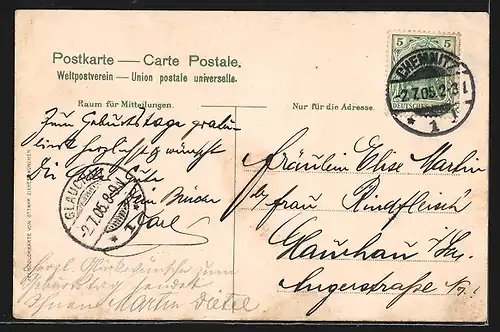 Postkarte — Carte Postale.
Weltpostverein — Union postale universelle.
Raum für Mitteilungen.
Nur für die Adresse.
5 5
DEUTSCHES
CHEMNITZ
2.7.05.
* 1
Zum Geburtstage gratu-
liert herzlichst & wünscht
Dir Gute
Dein Bruder
Carl
GLAUCHAU
-2.7.05.8-9.N
* 1
Fräulein Elise Martin
Frau Rindfleisch
Glauchau i/Sa.
Angerstraße No.
Herzl. Glückwünsche zum
Geburtstag sendet
Ihnen Martin Dietel